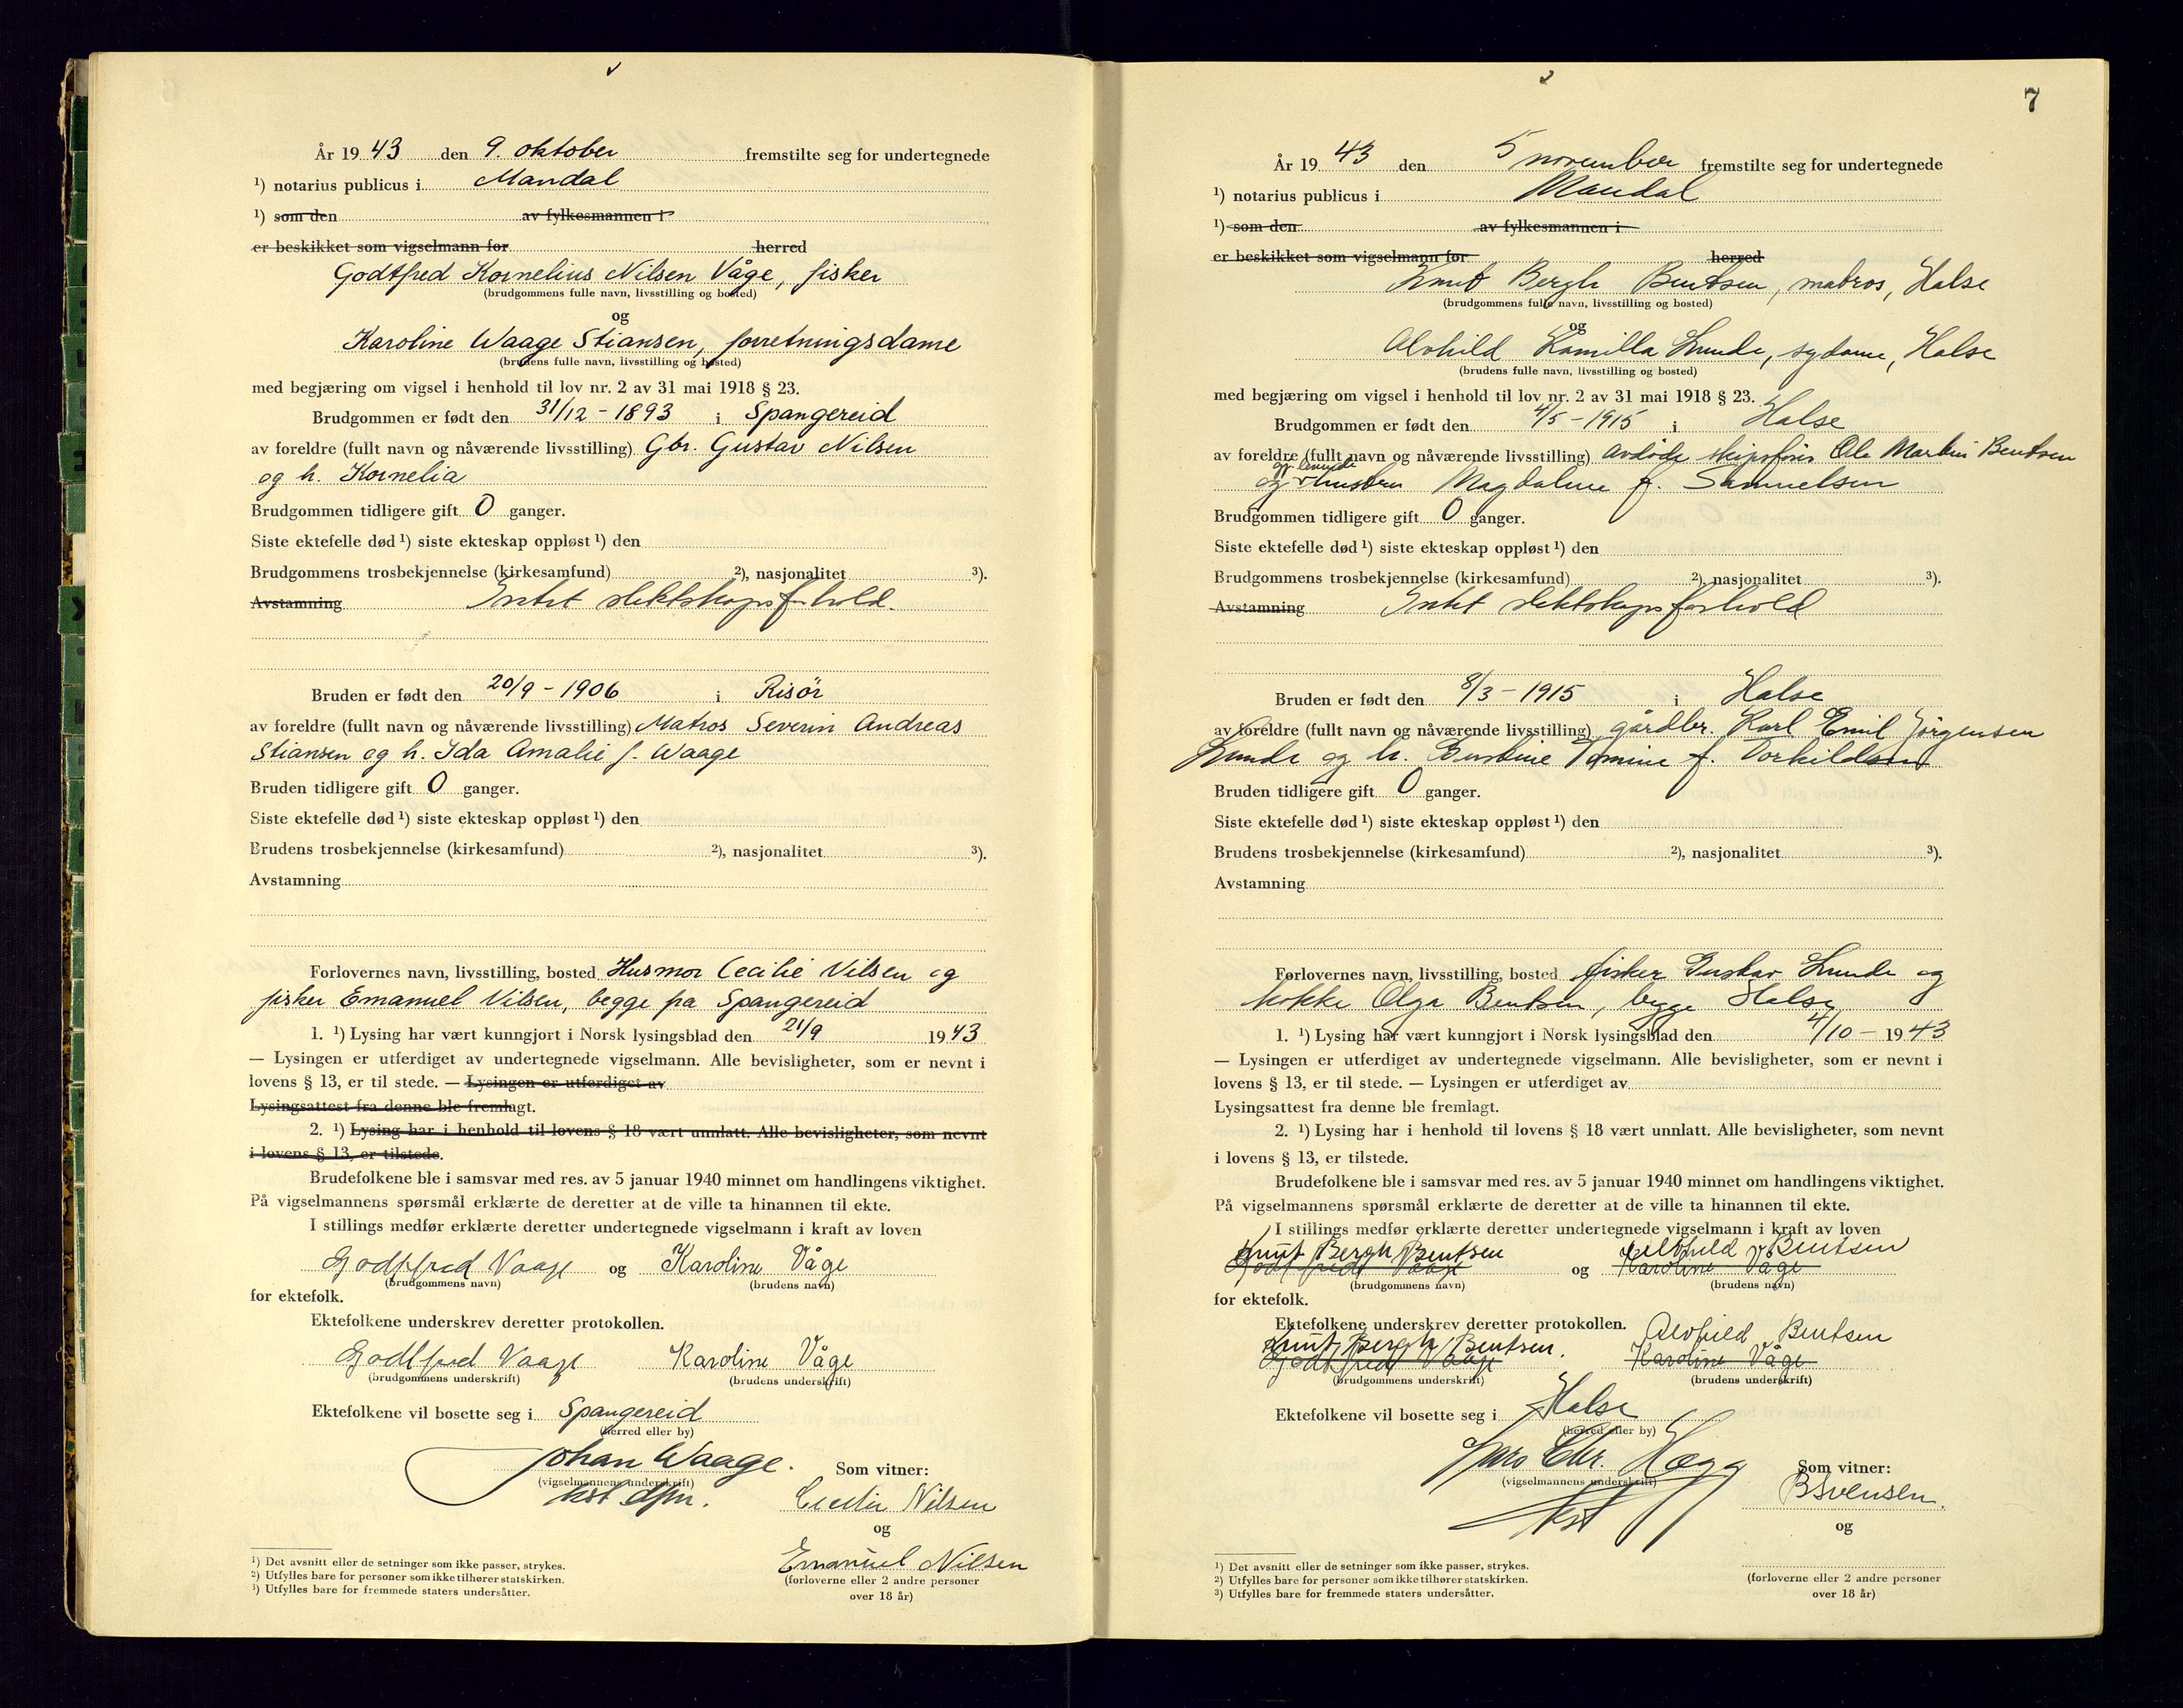 År 19 43 den 9. oktober fremstilte seg for undertegnede
¹) notarius publicus i Mandal
¹) som den av fylkesmannen i
er beskikket som vigselmann for herred
Godtfred Kornelius Nilsen Våge, fisker
(brudgommens fulle navn, livsstilling og bosted)
og
Karoline Waage Stiansen, forretningsdame
(brudens fulle navn, livsstilling og bosted)
med begjæring om vigsel i henhold til lov nr. 2 av 31 mai 1918 § 23.
Brudgommen er født den 31/12 - 1893 i Spangereid
av foreldre (fullt navn og nåværende livsstilling) Gbr. Gustav Nilsen
og h. Kornelia
Brudgommen tidligere gift 0 ganger.
Siste ektefelle død ¹) siste ekteskap oppløst ¹) den
Brudgommens trosbekjennelse (kirkesamfund) ²), nasjonalitet ³).
Avstamning Intet slektskapsfhold.
Bruden er født den 20/9 - 1906 i Risör
av foreldre (fullt navn og nåværende livsstilling) Matros Severin Andreas
Stiansen og h. Ida Amalie f. Waage
Bruden tidligere gift 0 ganger.
Siste ektefelle død ¹) siste ekteskap oppløst ¹) den
Brudens trosbekjennelse (kirkesamfund) ²), nasjonalitet ³).
Avstamning
Forlovernes navn, livsstilling, bosted Husmor Cecilie Nilsen og
fisker Emanuel Nilsen, begge fra Spangereid
1. ¹) Lysing har vært kunngjort i Norsk lysingsblad den 21/9 19 43
— Lysingen er utferdiget av undertegnede vigselmann. Alle bevisligheter, som er nevnt i
lovens § 13, er til stede. — Lysingen er utferdiget av
Lysingsattest fra denne ble fremlagt.
2. ¹) Lysing har i henhold til lovens § 18 vært unnlatt. Alle bevisligheter, som nevnt
i lovens § 13, er tilstede.
Brudefolkene ble i samsvar med res. av 5 januar 1940 minnet om handlingens viktighet.
På vigselmannens spørsmål erklærte de deretter at de ville ta hinannen til ekte.
I stillings medfør erklærte deretter undertegnede vigselmann i kraft av loven
Godtfred Vaage og Karoline Våge
(brudgommens navn) (brudens navn)
for ektefolk.
Ektefolkene underskrev deretter protokollen.
Godtfred Vaage Karoline Våge
(brudgommens underskrift) (brudens underskrift)
Ektefolkene vil bosette seg i Spangereid
(herred eller by)
Johan Waage.
(vigselmannens underskrift)
kst dfm.
Som vitner:
Cecilie Nilsen
og
Emanuel Nilsen
(forloverne eller 2 andre personer
over 18 år)
¹) Det avsnitt eller de setninger som ikke passer, strykes.
²) Utfylles bare for personer som ikke tilhører statskirken.
³) Utfylles bare for fremmede staters undersåtter.
7
År 19 43 den 5 november fremstilte seg for undertegnede
¹) notarius publicus i Mandal
¹) som den av fylkesmannen i
er beskikket som vigselmann for herred
Knut Bergh Bentsen, matros, Halse
(brudgommens fulle navn, livsstilling og bosted)
og
Alvhild Kamilla Lunde, sydame, Halse
(brudens fulle navn, livsstilling og bosted)
med begjæring om vigsel i henhold til lov nr. 2 av 31 mai 1918 § 23.
Brudgommen er født den 4/5 - 1915 i Halse
av foreldre (fullt navn og nåværende livsstilling) avdøde skipsfører Ole Martin Bentsen
og hustru Magdalene f. Samuelsen
Brudgommen tidligere gift 0 ganger.
Siste ektefelle død ¹) siste ekteskap oppløst ¹) den
Brudgommens trosbekjennelse (kirkesamfund) ²), nasjonalitet ³).
Avstamning Intet slektskapsforhold
Bruden er født den 8/3 - 1915 i Halse
av foreldre (fullt navn og nåværende livsstilling) gårdbr. Karl Emil Jörgensen
Lunde og h. Gustine Tomine f. Torkildsen
Bruden tidligere gift 0 ganger.
Siste ektefelle død ¹) siste ekteskap oppløst ¹) den
Brudens trosbekjennelse (kirkesamfund) ²), nasjonalitet ³).
Avstamning
Forlovernes navn, livsstilling, bosted fisker Gustav Lunde og
kokke Olga Bentsen, begge Halse
1. ¹) Lysing har vært kunngjort i Norsk lysingsblad den 4/10 - 19 43
— Lysingen er utferdiget av undertegnede vigselmann. Alle bevisligheter, som er nevnt i
lovens § 13, er til stede. — Lysingen er utferdiget av
Lysingsattest fra denne ble fremlagt.
2. ¹) Lysing har i henhold til lovens § 18 vært unnlatt. Alle bevisligheter, som nevnt
i lovens § 13, er tilstede.
Brudefolkene ble i samsvar med res. av 5 januar 1940 minnet om handlingens viktighet.
På vigselmannens spørsmål erklærte de deretter at de ville ta hinannen til ekte.
I stillings medfør erklærte deretter undertegnede vigselmann i kraft av loven
Knut Bergh Bentsen Alvhild Bentsen
Godtfred Vaage og Karoline Våge
(brudgommens navn) (brudens navn)
for ektefolk.
Ektefolkene underskrev deretter protokollen.
Knut Bergh Bentsen. Alvhild Bentsen
Godtfred Vaage Karoline Våge
(brudgommens underskrift) (brudens underskrift)
Ektefolkene vil bosette seg i Halse
(herred eller by)
Lars Chr. Hægg
(vigselmannens underskrift)
kst
Som vitner:
BSvensen.
og
(forloverne eller 2 andre personer
over 18 år)
¹) Det avsnitt eller de setninger som ikke passer, strykes.
²) Utfylles bare for personer som ikke tilhører statskirken.
³) Utfylles bare for fremmede staters undersåtter.